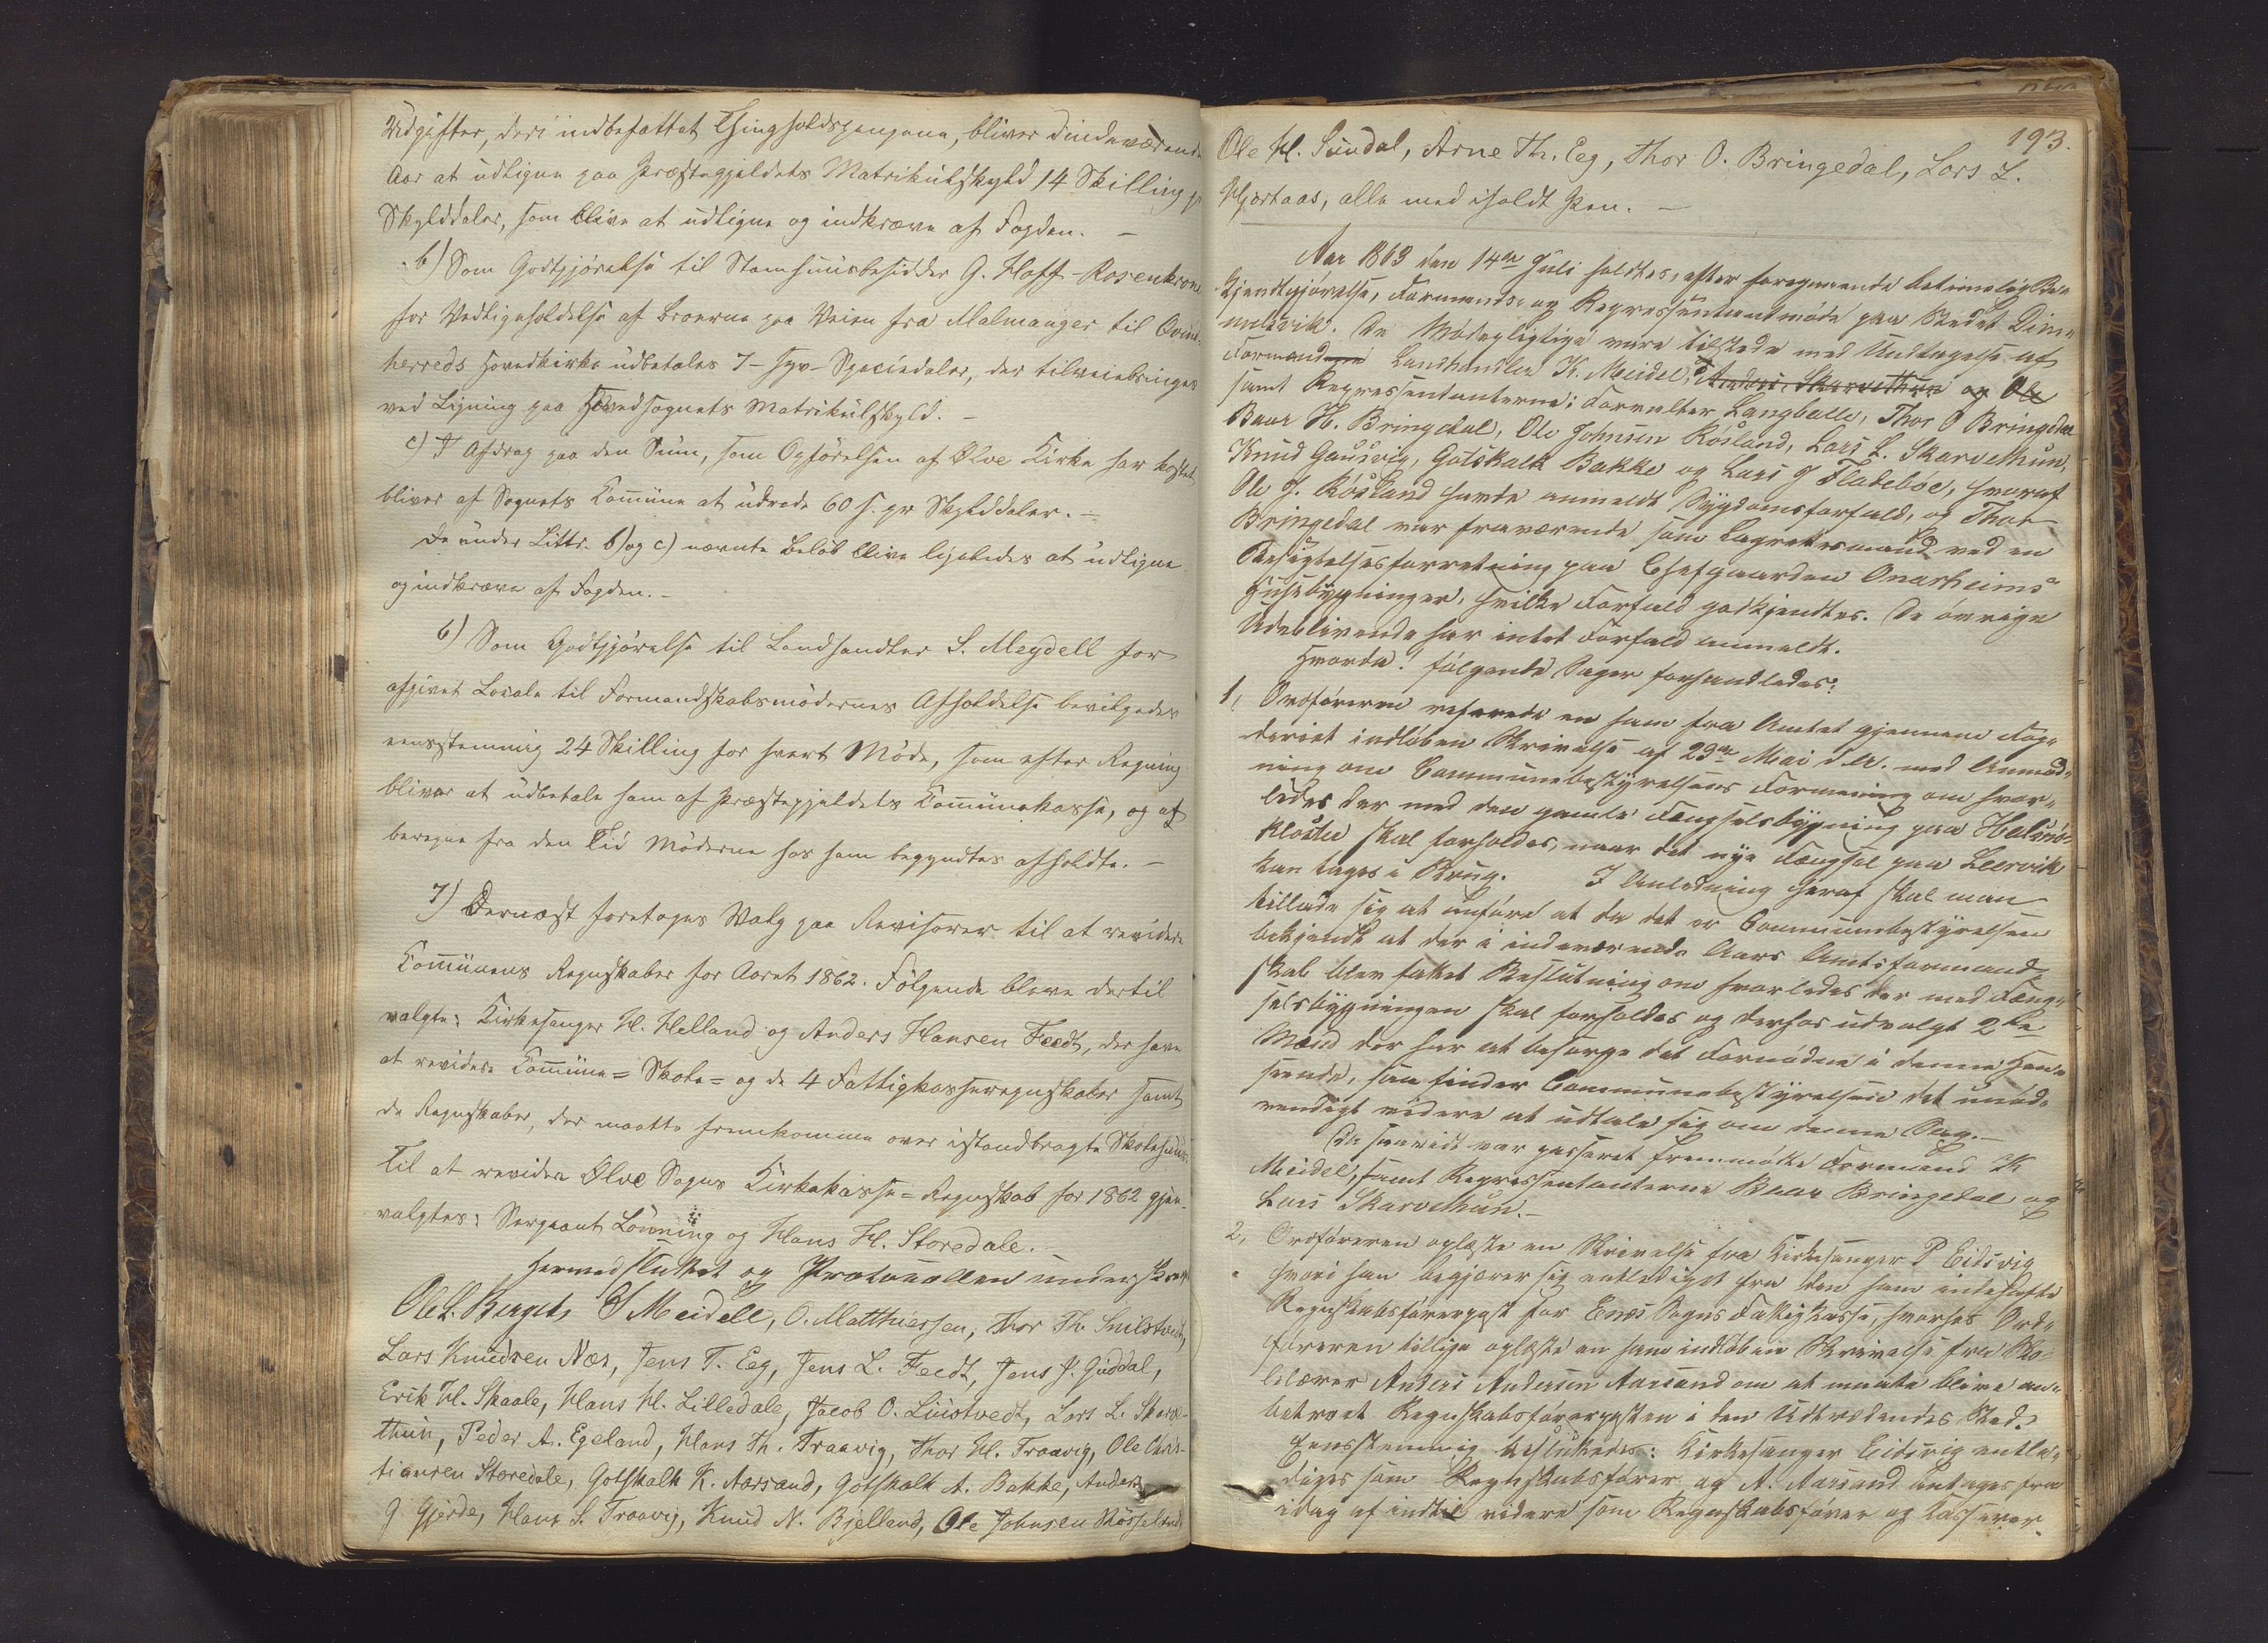 Udgifter, deri indbefattet Thingholdspengene, bliver dindeværende
Aar at udligne paa Præstegjeldets Matrikulskyld 14 Skilling pr
Skylddaler, som blive at udligne og indkræve af Fogden. –
b) Som Godtgjørelse til Stamhuusbesidder G. Hoff-Rosenkrone
for Vedligeholdelse af Broerne paa Veien fra Malmanger til Qvind-
herreds Hovedkirke udbetales 7 – syv – Speciedaler, der tilveiebringes
ved Ligning paa Hovedsognets Matrikulskyld. –
c) I Afdrag paa den Sum, som Opførelsen af Ølve Kirke har kostet,
bliver af Sognets Commune at udrede 60 s. pr Skylddaler. –
De under Littr. b) og c) nævnte Beløb blive ligeledes at udligne
og indkræve af Fogden. –
6) Som Godtgjørelse til Landhandler S. Meydell for
afgivet Locale til Formandskabsmødernes Afholdelse bevilgedes
eensstemmig 24 Skilling for hvert Møde, som efter Regning
bliver at udbetale ham af Præstegjeldets Communekasse, og at
beregne fra den Tid Møderne hos ham begyndtes afholdte. –
7) Dernæst foretoges Valg paa Revisorer til at revidere
Communens Regnskaber for Aaret 1862. Følgende bleve dertil
valgte: Kirkesanger H. Helland og Anders Hansen Feedt, der have
at revidere Commune- Skole- og de 4 Fattigkasseregnskaber samt
de Regnskaber, der maatte fremkomme over istandbragte Skolehuse.
Til at revidere Ølve Sogns Kirkekasse-Regnskab for 1862 gjen-
valgtes: Sergeant Lønning og Hans H. Storedale. –
Hermed sluttet og Protocollen underskrevet
Ole L. Berget, S Meidell, O. Matthiessen, Thor Th. Snilstvedt,
Lars Knudsen Næs, Jens T. Eeg, Jens L. Feedt, Jens J. Guddal,
Erik H. Skaale, Hans H. Lilledale, Jacob O. Liustvedt, Lars L. Skarve-
thun, Peder A. Egeland, Hans Th. Traavig, Thor H. Traavig, Ole Chris-
tiansen Storedale, Gotskalk K. Aarsand, Gotskalk A. Bakke, Anders
G Gjerde, Hans S. Traavig, Knud N. Bjelland, Ole Johnsen Røsseland
193.
Ole H. Sundal, Arne Th. Eeg, Thor O. Bringedal, Lars L.
Hjortaas, alle med iholdt Pen. –
Aar 1863 den 14de Juli holdtes, efter foregaaende betimelig Be-
kjendtgjørelse, Formands- og Repræsentantmøde paa Stedet Dim-
melsvik. De Mødepligtige vare tilstede med Undtagelse af
Formand Landhandler K. Meidel, Anders Skarvethun og Ole
samt Repræsentanterne: Forvalter Langballe, Thor O Bringedal
Baar H. Bringedal, Ole Johnsen Røsland, Lars L. Skarvethun,
Knud Gausvig, Gotskalk Bakke og Lars G Fladebøe, hvoraf
Ole J. Røsland havde anmeldt Sygdomsforfald, og Thor
Bringedal var fraværende som Lagrettesmand ved en
Besigtelsesforretning paa Chefgaarden Onarheims
Husebygninger, hvilke Forfald godkjendtes. De øvrige
Udeblivende har intet Forfald anmeldt.
Hvorda følgende Sager forhandledes:
1, Ordføreren refererede en ham fra Amtet gjennem Fog-
deriet indløben Skrivelse af 29de Mai d. A. med Anmod-
ning om Communebestyrelsens Formening om hvor-
ledes der med den gamle Fængselsbygning paa Halsnø-
kloster skal forholdes, naar det nye Fængsel paa Leervik
kan tages i Brug. I Anledning heraf skal man
tillade sig at anføre at da det er Communebestyrelsen
bekjendt at der i indeværende Aars Amtsformand-
skab blev fattet Beslutning om hvorledes der med Fæng-
selsbygningen skal forholdes og derhos udvalgt 2de
Mænd der har at besørge det Fornødne i denne Hen-
seende, saa finder Communebestyrelsen det unød-
vendigt videre at udtale sig om denne Sag. –
Da saavidt var passeret fremmødte Formand K
Meidel, samt Repræsentanterne Baar Bringedal og
Lars Skarvethun. –
2, Ordføreren oplæste en Skrivelse fra Kirkesanger P Eidsvig
hvori han begjærer sig entlediget fra den ham indehafte
Regnskabsførerpost for Enæs Sogns Fattigkasse, hvorhos Ord-
føreren tillige oplæste en ham indløben Skrivelse fra Sko-
lelærer Anders Andersen Aarsand om at maatte blive an-
betroet Regnskabsførerposten i den Udtrædendes Sted.
Eensstemmig besluttedes: Kirkesanger Eidsvig entle-
diges som Regnskabsfører, og A. Aarsand antages fra
idag af indtil videre som Regnskabsfører og Kasserer